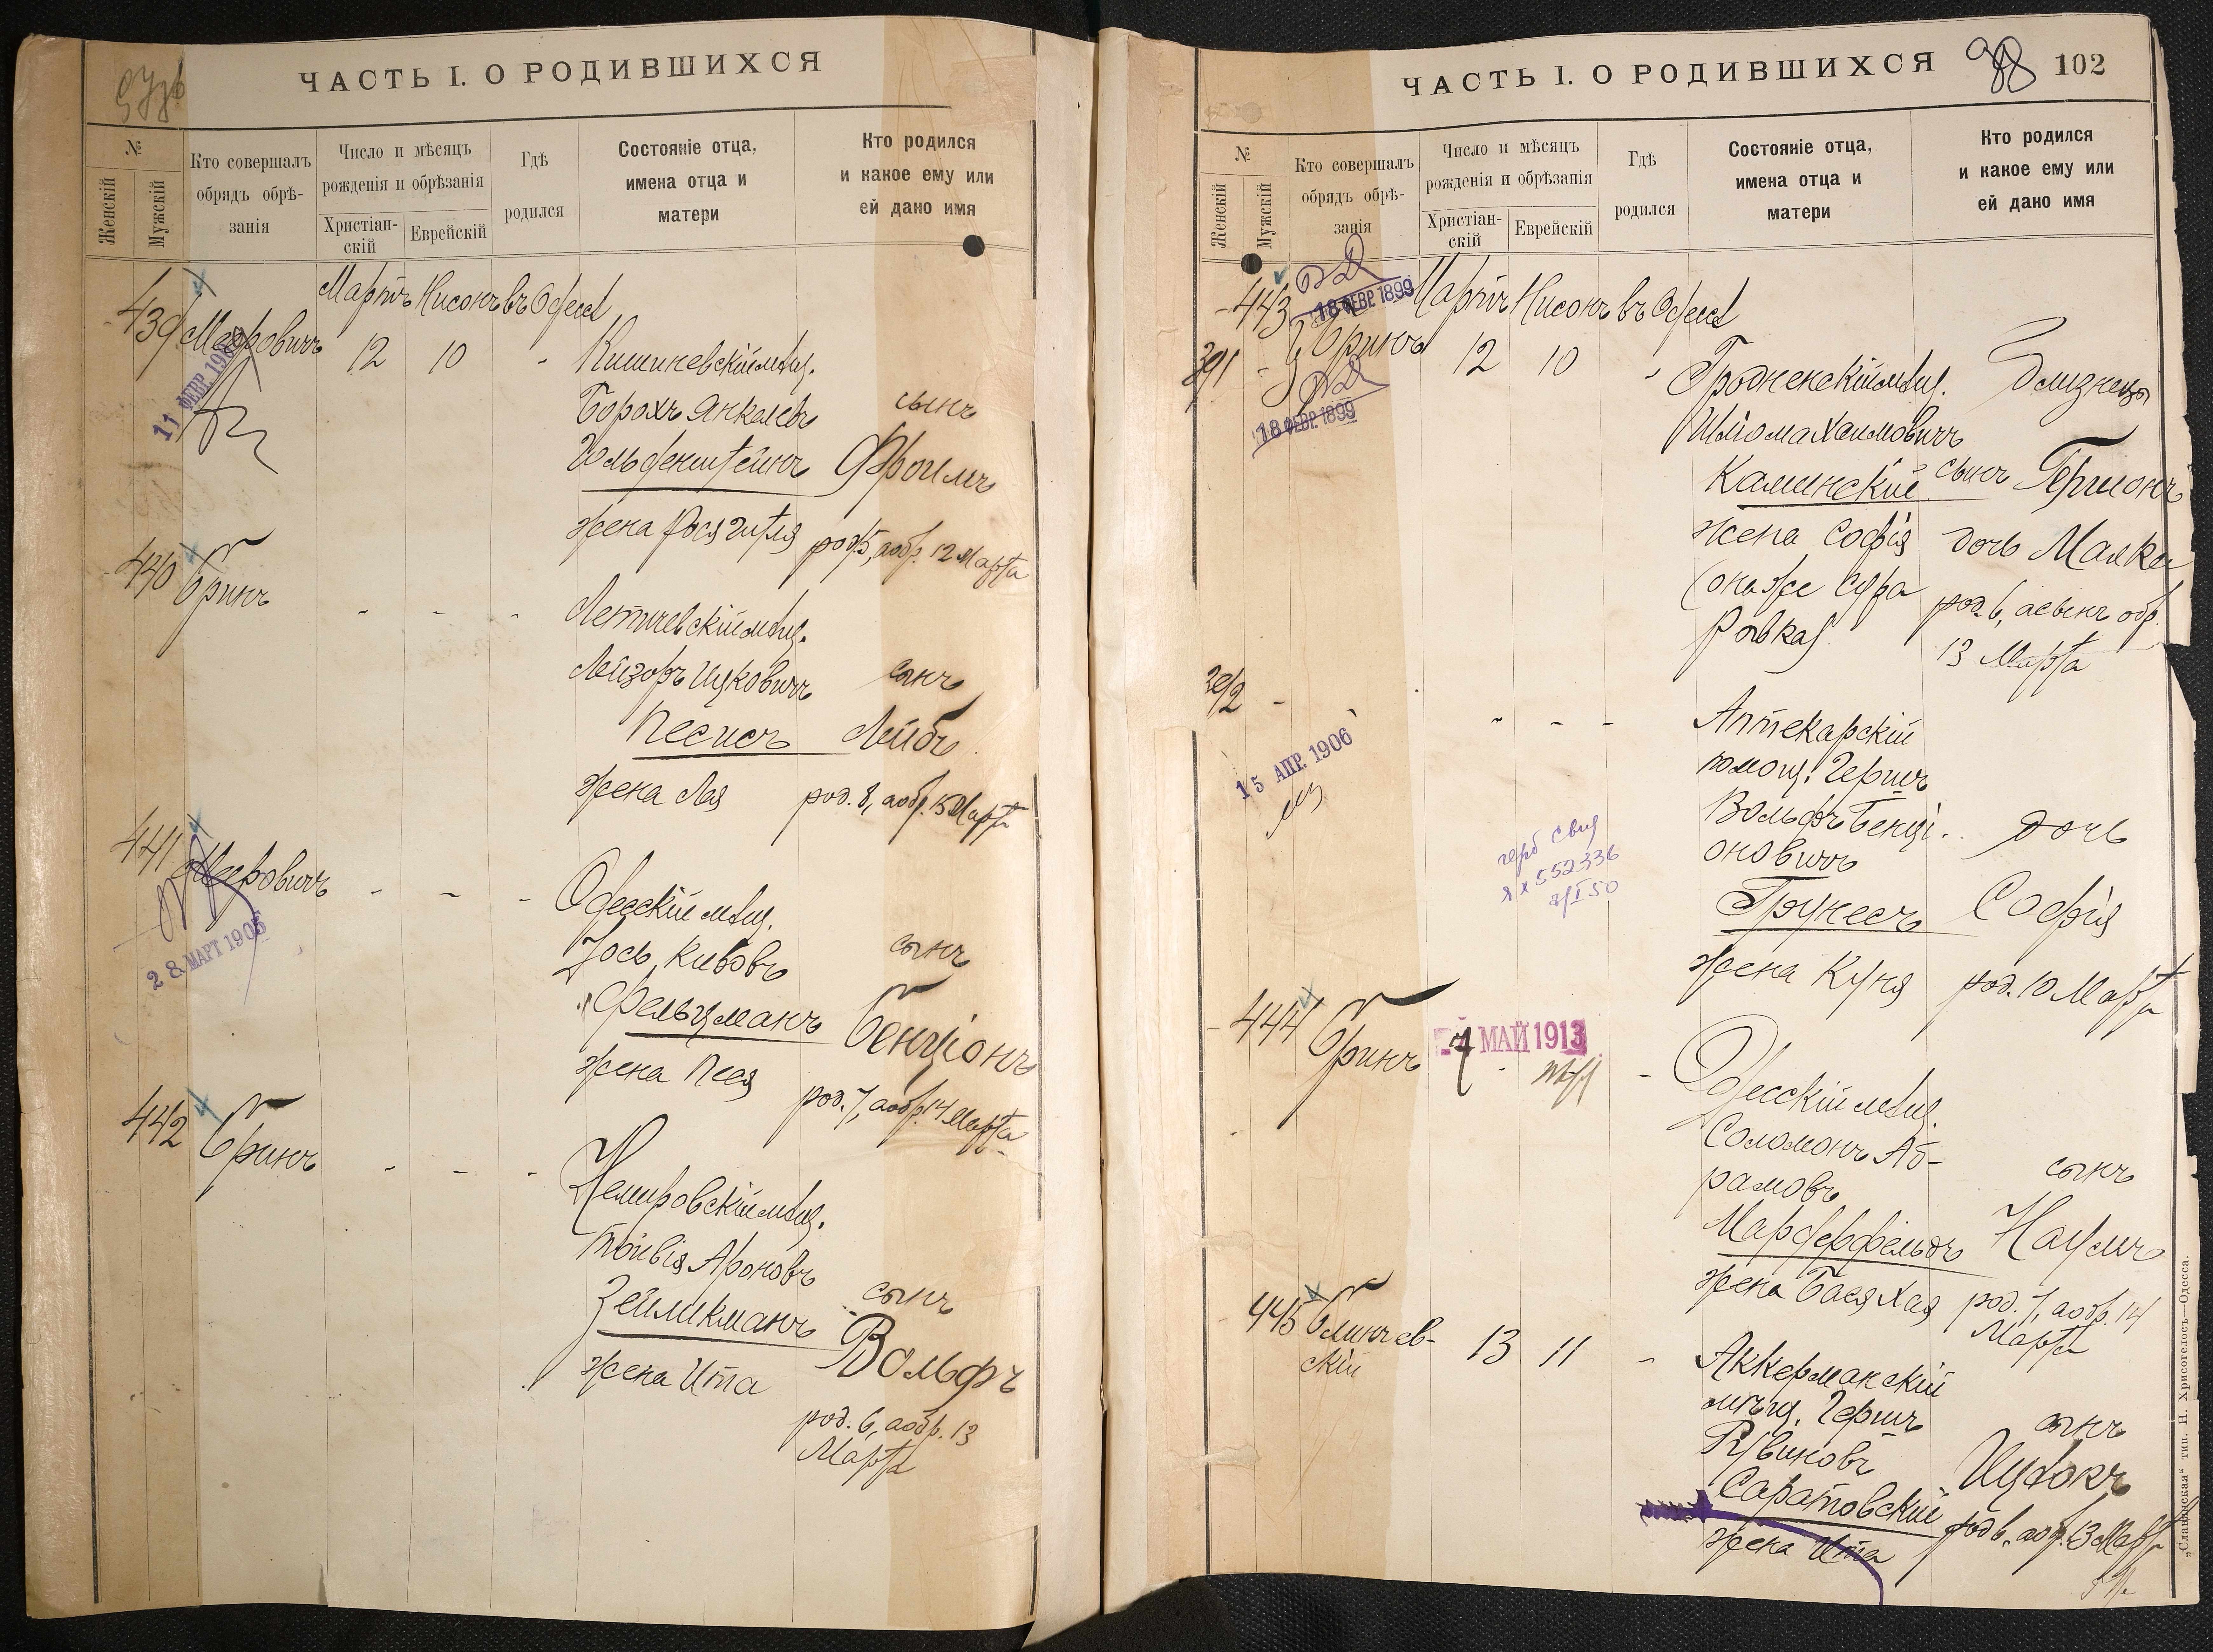 ЧАСТЬ I. О РОДИВШИХСЯ
№
Женскій
Мужскій
Кто совершалъ
обрядъ обрѣ-
занія
Число и мѣсяцъ
рожденія и обрѣзанія
Христіан-
скій
Еврейскій
Гдѣ
родился
Состояніе отца,
имена отца и
матери
Кто родился
и какое ему или
ей дано имя
Мартъ Нисонъ въ Одессѣ
439 Мееровичъ 12 10 - Кишиневскій мѣщ.
11 ФЕВР.
Борохъ Янкелевъ сынъ
Гольденштейнъ Фроимъ
жена Рося Гитля род. 5, а обр. 12 Марта
440 Бринъ - - - Летичевскій мѣщ.
Лейзоръ Ицковичъ сынъ
Песисъ Лейбъ
жена Лея род. 8, а обр. 15 Марта
441 Мееровичъ - - - Одесскій мѣщ.
28 МАРТ 1905
Іось Кивовъ сынъ
Фельцманъ Бенціонъ
жена Песя род. 7, а обр. 14 Марта
442 Бринъ - - - Немировскій мѣщ.
Тойвія Ароновъ
Зейликманъ сынъ
жена Ита Вольфъ
род. 6, а обр. 13
Марта
ЧАСТЬ I. О РОДИВШИХСЯ
98 102
№
Женскій
Мужскій
Кто совершалъ
обрядъ обрѣ-
занія
Число и мѣсяцъ
рожденія и обрѣзанія
Христіан-
скій
Еврейскій
Гдѣ
родился
Состояніе отца,
имена отца и
матери
Кто родился
и какое ему или
ей дано имя
18 ФЕВР. 1899
Мартъ Нисонъ въ Одессѣ
443
391 - Бринъ 12 10 - Гродненскій мѣщ. Близнецы
18 ФЕВР. 1899
Шлома Хаимовичъ
Каминскій сынъ Гершонъ
жена Софія дочь Малка
(она же Сура род. 6, а сынъ обр.
Ривка) 13 Марта
392 - - - - Аптекарскій
15 АПР. 1906
помощ. Гершъ
Вольфъ Бенці-
оновичъ дочь
герб свид
552336
50
Грунесъ Софія
жена Куня род. 10 Марта
444 Бринъ - - Одесскій мѣщ.
7 МАЙ 1913
Соломонъ Аб-
рамовъ сынъ
Мардерфельдъ Наумъ
жена Бася Хая род. 7, а обр. 14
Марта
445 Блинчев-
скій 13 11 - Аккерманскій
мѣщ. Гершъ
Рувиновъ сынъ
Саратовскій Ицхокъ
жена Ита род. 6, а обр. 13 Марта
„Славянская“ тип. Н. Хрисогелосъ—Одесса.